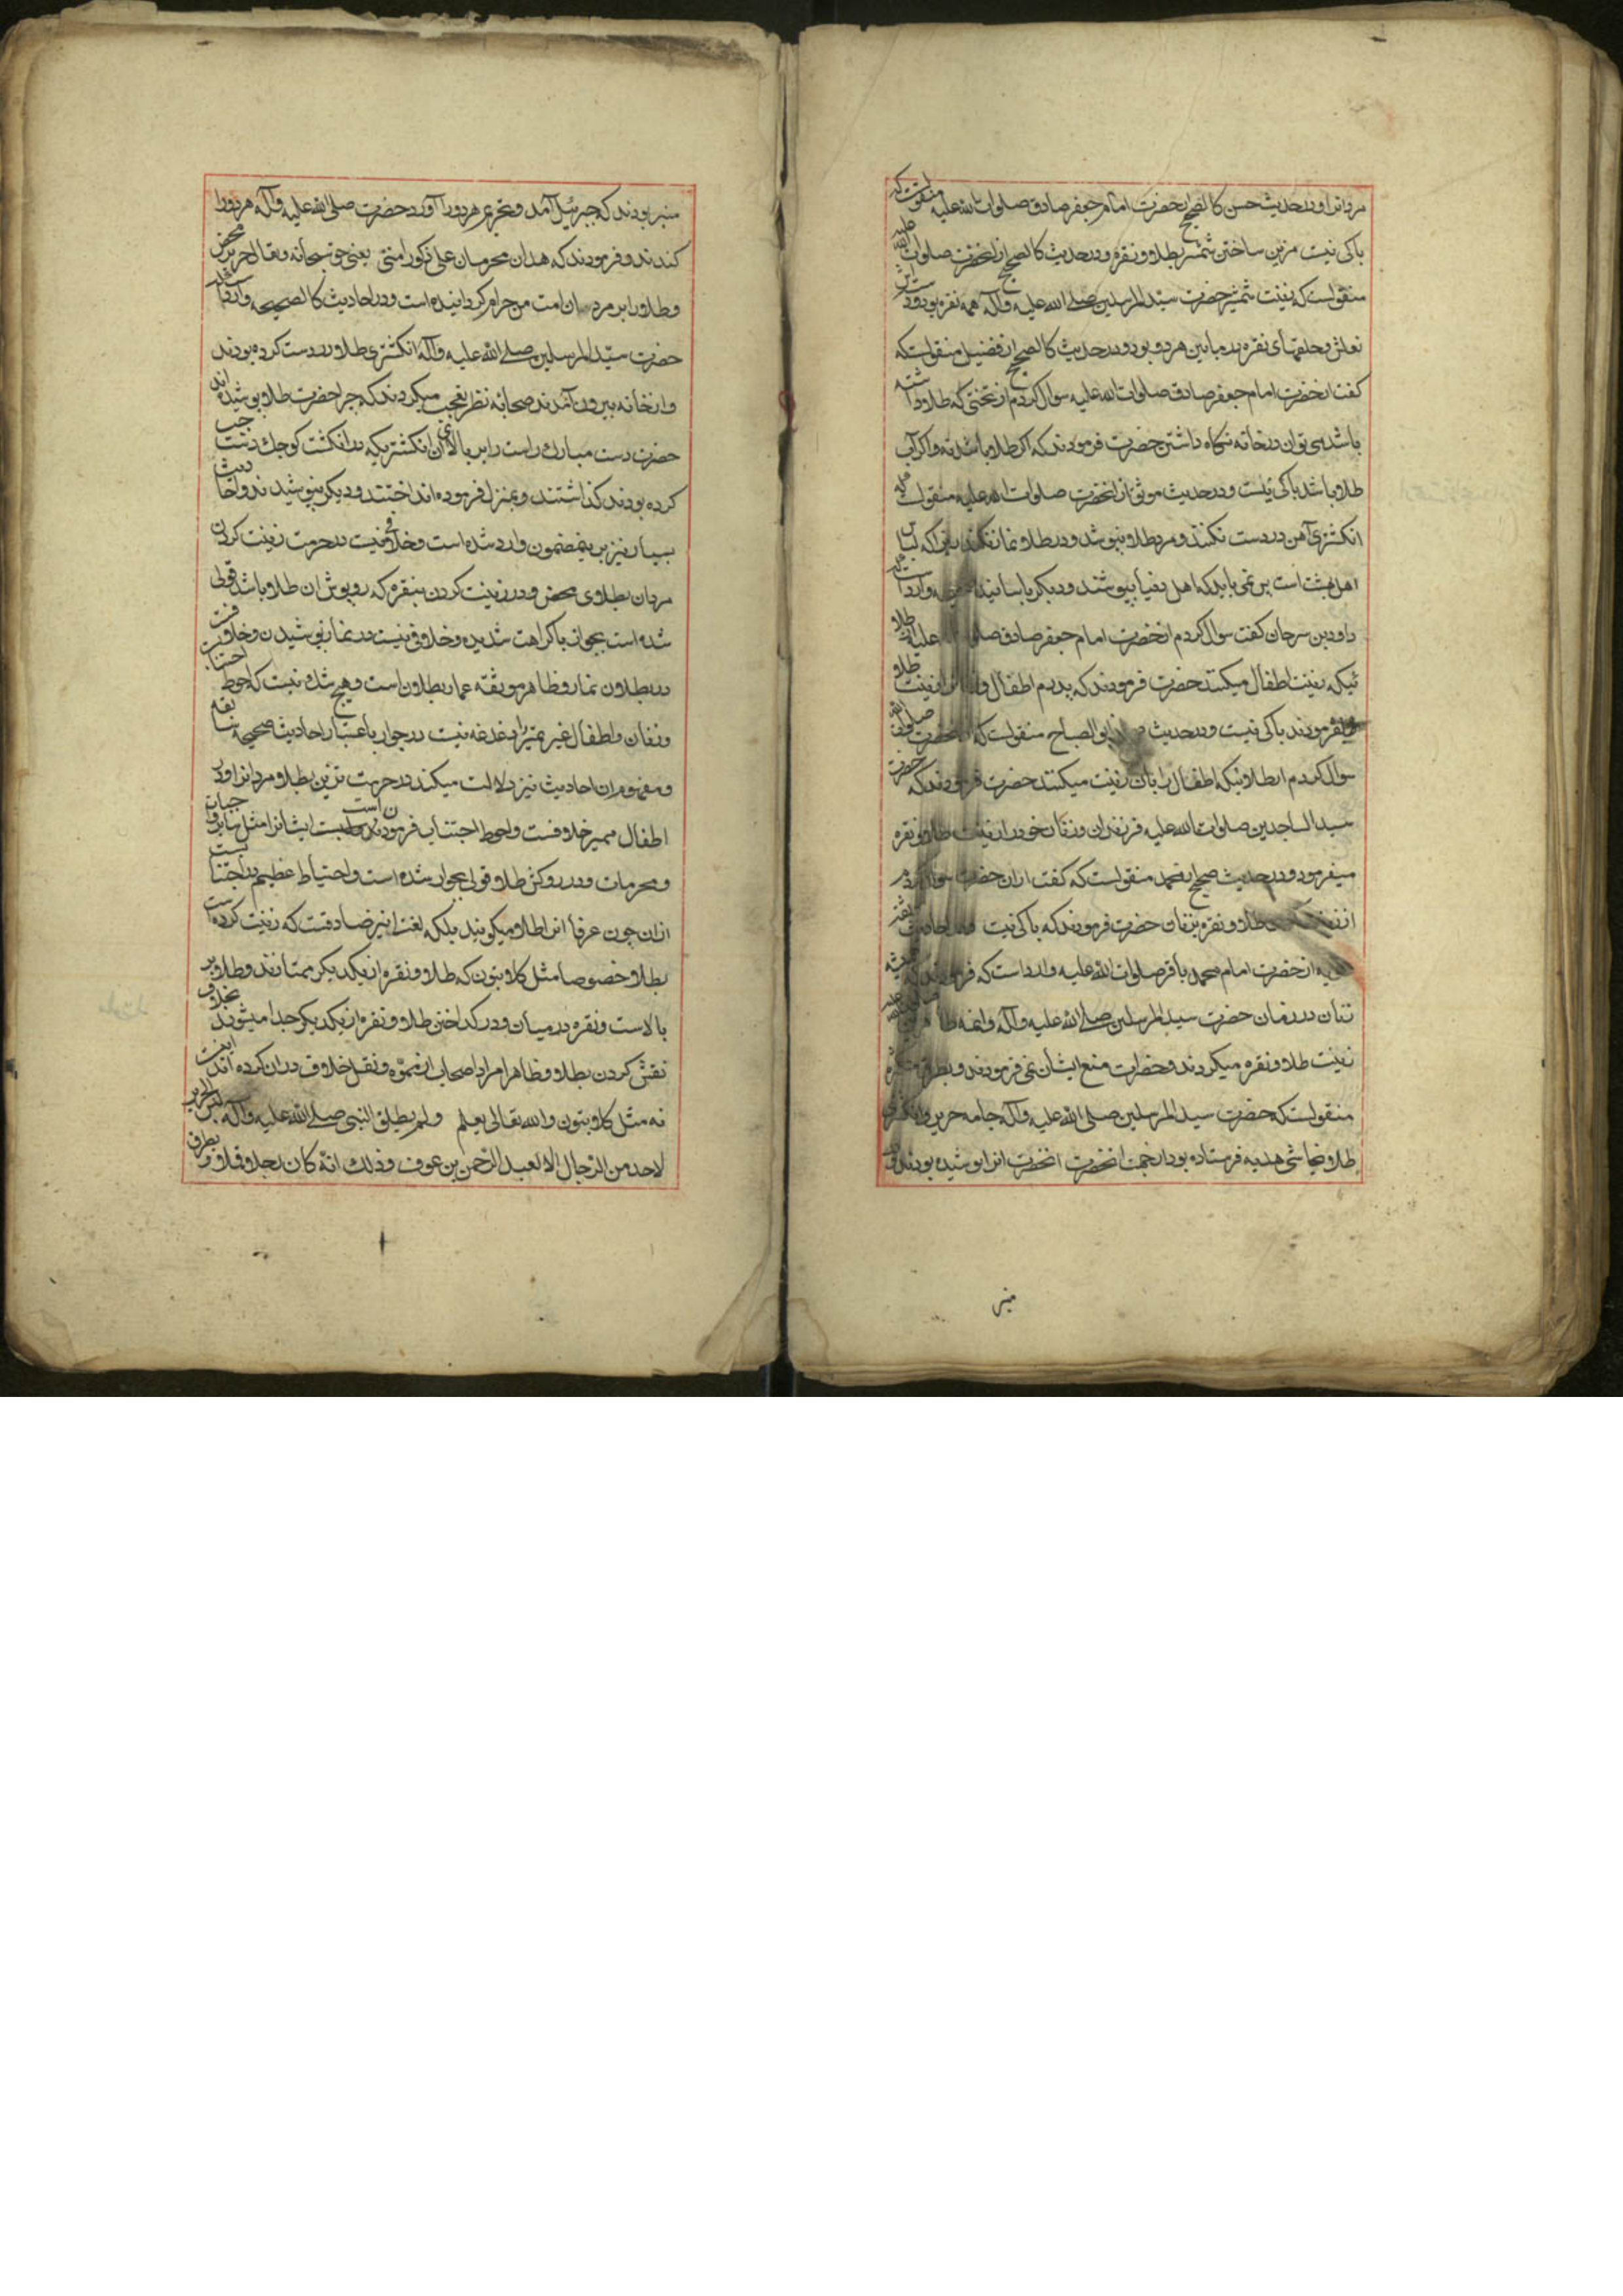 مردانرا و در حدیث حسن کالصحیح از حضرت امام جعفر صادق صلوات الله علیه منقولست که
باکی نیست مزین ساختن شمشیر بطلا و نقره و در حدیث کالصحیح از انحضرت صلوات الله علیه
منقولست که زینت شمشیر حضرت سید المرسلین صلی الله علیه و آله همه نقره بود و
نعلش و حلقهای نقره بد مابین هر دو بود و در حدیث کالصحیح از فضیل منقولست که
گفت از حضرت امام جعفر صادق صلوات الله علیه سوال کردم از تختی که طلا داشته
باشد می توان در خانه نگاه داشتن حضرت فرمودند که اگر طلا باشد نه و اگر آب
طلا باشد باکی نیست و در حدیث موثق از انحضرت صلوات الله علیه منقولست که
انگشتری آهن در دست نکنند و مرد طلا نپوشد و در طلا نماز نکند زیرا که لباس
اهل بهشت است پس نمی باید که اهل دنیا بپوشند و دیگر باسانید صحیحه وارد است که
داود بن سرحان گفت سوال کردم از حضرت امام جعفر صادق علیه از طلا
ئیکه زینت اطفال میکنند حضرت فرمودند که پدرم اطفال و زنانرا زینت طلا
فرمودند باکی نیست و در حدیث ابو الصباح منقولست که از انحضرت صلوات الله
سوال کردم از طلائیکه اطفال را بان زینت میکنند حضرت فرمودند که حضرت
سید الساجدین صلوات الله علیه فرزندان و زنان خود را زینت طلا و نقره
میفرمود و در حدیث صحیح از محمد منقولست که گفت از ان حضرت سوال کردم
از طلا و نقره بزنان حضرت فرمودند که باکی نیست
از حضرت امام محمد باقر صلوات الله علیه وارداست که فرمودند که
زنان در زمان حضرت سید المرسلین صلی الله علیه و آله و ائمه
زینت طلا و نقره میکردند و حضرات منع ایشان نمی فرمودند و بطرق متکثره
منقولست که حضرت سید المرسلین صلی الله علیه و آله جامه حریر و انگشتر
طلا نجاشی هدیه فرستاده بود از جهت انحضرت انحضرت انرا پوشیده بودند و بر
منبر
منبر بودند که جبرئیل آمد و تحریم هر دو را آورد حضرت صلی الله علیه و آله هر دو را
کندند و فرمودند که هذان محرمان علی ذکور امتی یعنی حق سبحانه و تعالی حریر محض
و طلا را بر مردان امت من حرام گردانیده است و در احادیث کالصحیحه وارد است که
حضرت سید المرسلین صلی الله علیه و آله انگشتری طلا در دست کرده بودند
و از خانه بیرون آمدند صحابه نظر تعجب میکردند که چرا حضرت طلا پوشیده اند
حضرت دست مبارک راست را بر بالای ان انگشتریکه در انگشت کوچک دست چپ
کرده بودند گذاشتند و بمنزل فرموده انداختند و دیگر نپوشیدند و احادیث
بسیار نیز برین مضمون وارد شده است و خلافی نیست در حرمت زینت کردن
مردان بطلای محض و در زینت کردن بنقره که روپوش ان طلا باشد قولی
شده است بجواز با کراهت شدیده و خلافی نیست در نماز نپوشیدن و خلافست
در بطلان نماز و ظاهر موثقه عمار بطلان است و هیچ شک نیست که احوط اجتنابست
و زنان و اطفال غیر ممیز را دغدغه نیست در جواز باعتبار احادیث صحیحه سابقه
و مفهوم ان احادیث نیز دلالت میکند در حرمت تزین بطلا مردانرا و در
اطفال ممیز خلافست و احوط اجتناب فرمودن است ایشانرا مثل سایر واجبات
و محرمات و در روکش طلا قولی بجواز شده است و احتیاط عظیم در اجتنابست
ازان چون عرفا انرا طلا میگویند بلکه لغت نیز صادقست که زینت کرده است
بطلا خصوصا مثل کلابتون که طلا و نقره از یکدیگر ممتازند و طلا بر
بالاست و نقره در میان و در گداختن طلا و نقره از یکدیگر جدا میشوند بخلاف
نقش کردن بطلا و ظاهرا مراد اصحاب از مموه و نقل خلاف در ان کرده اند اینست
نه مثل کلابتون والله تعالی یعلم ولم یطلق النبی صلی الله علیه وآله لبس الحریر
لاحد من الرجال الا لعبد الرحمن بن عوف وذلک انه کان رجلا قملا و بطرق